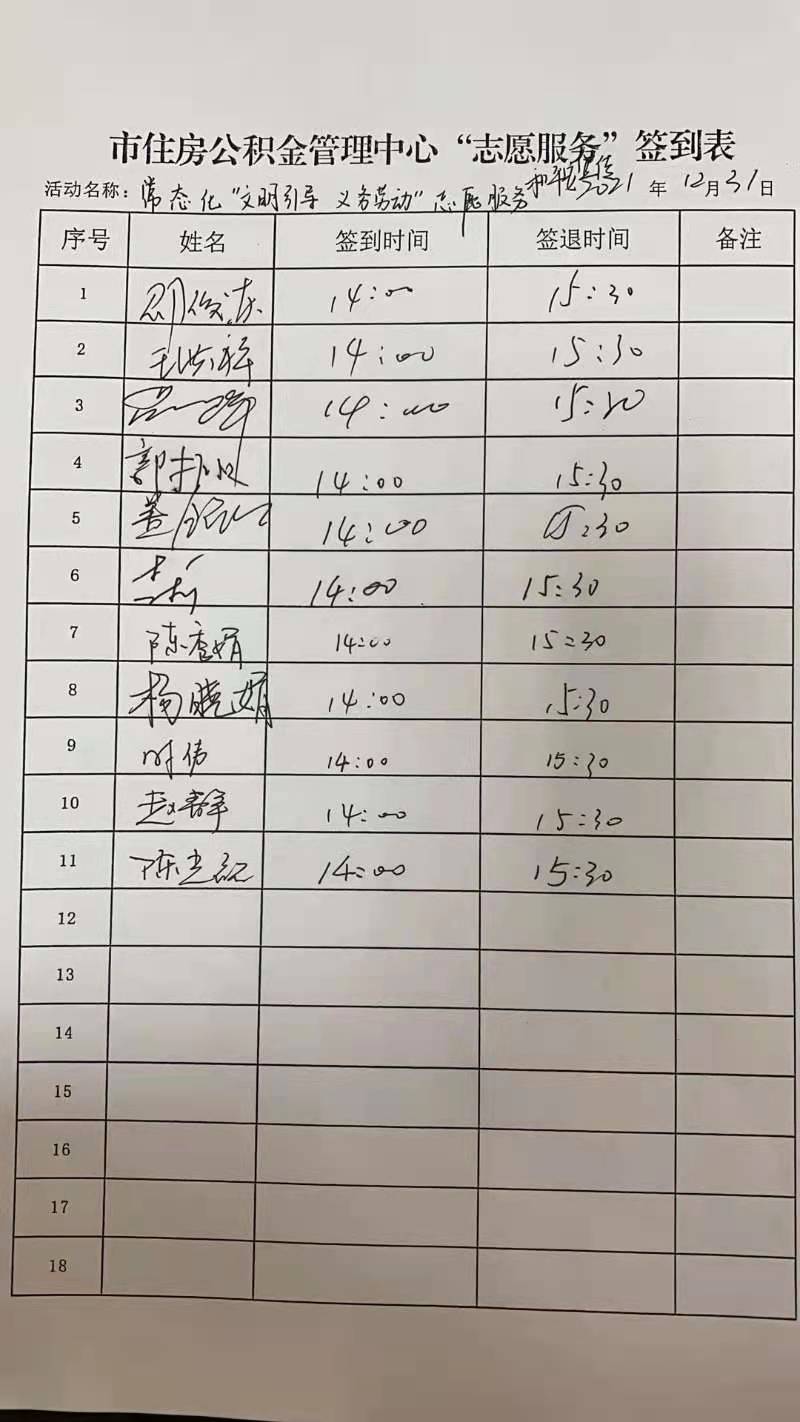 市住房公积金管理中心“志愿服务”签到表
活动名称：常态化“文明引导 义务劳动”志愿服务 2021 年 12月31日
序号 姓名 签到时间 签退时间 备注
1 14:00 15:30
2 14:00 15:30
3 14:00 15:30
4 郭 14:00 15:30
5 14:00 15:30
6 14:00 15:30
7 陈 娟 14:00 15:30
8 杨晓娟 14:00 15:30
9 时伟 14:00 15:30
10 赵静 14:00 15:30
11 陈 14:00 15:30
12
13
14
15
16
17
18